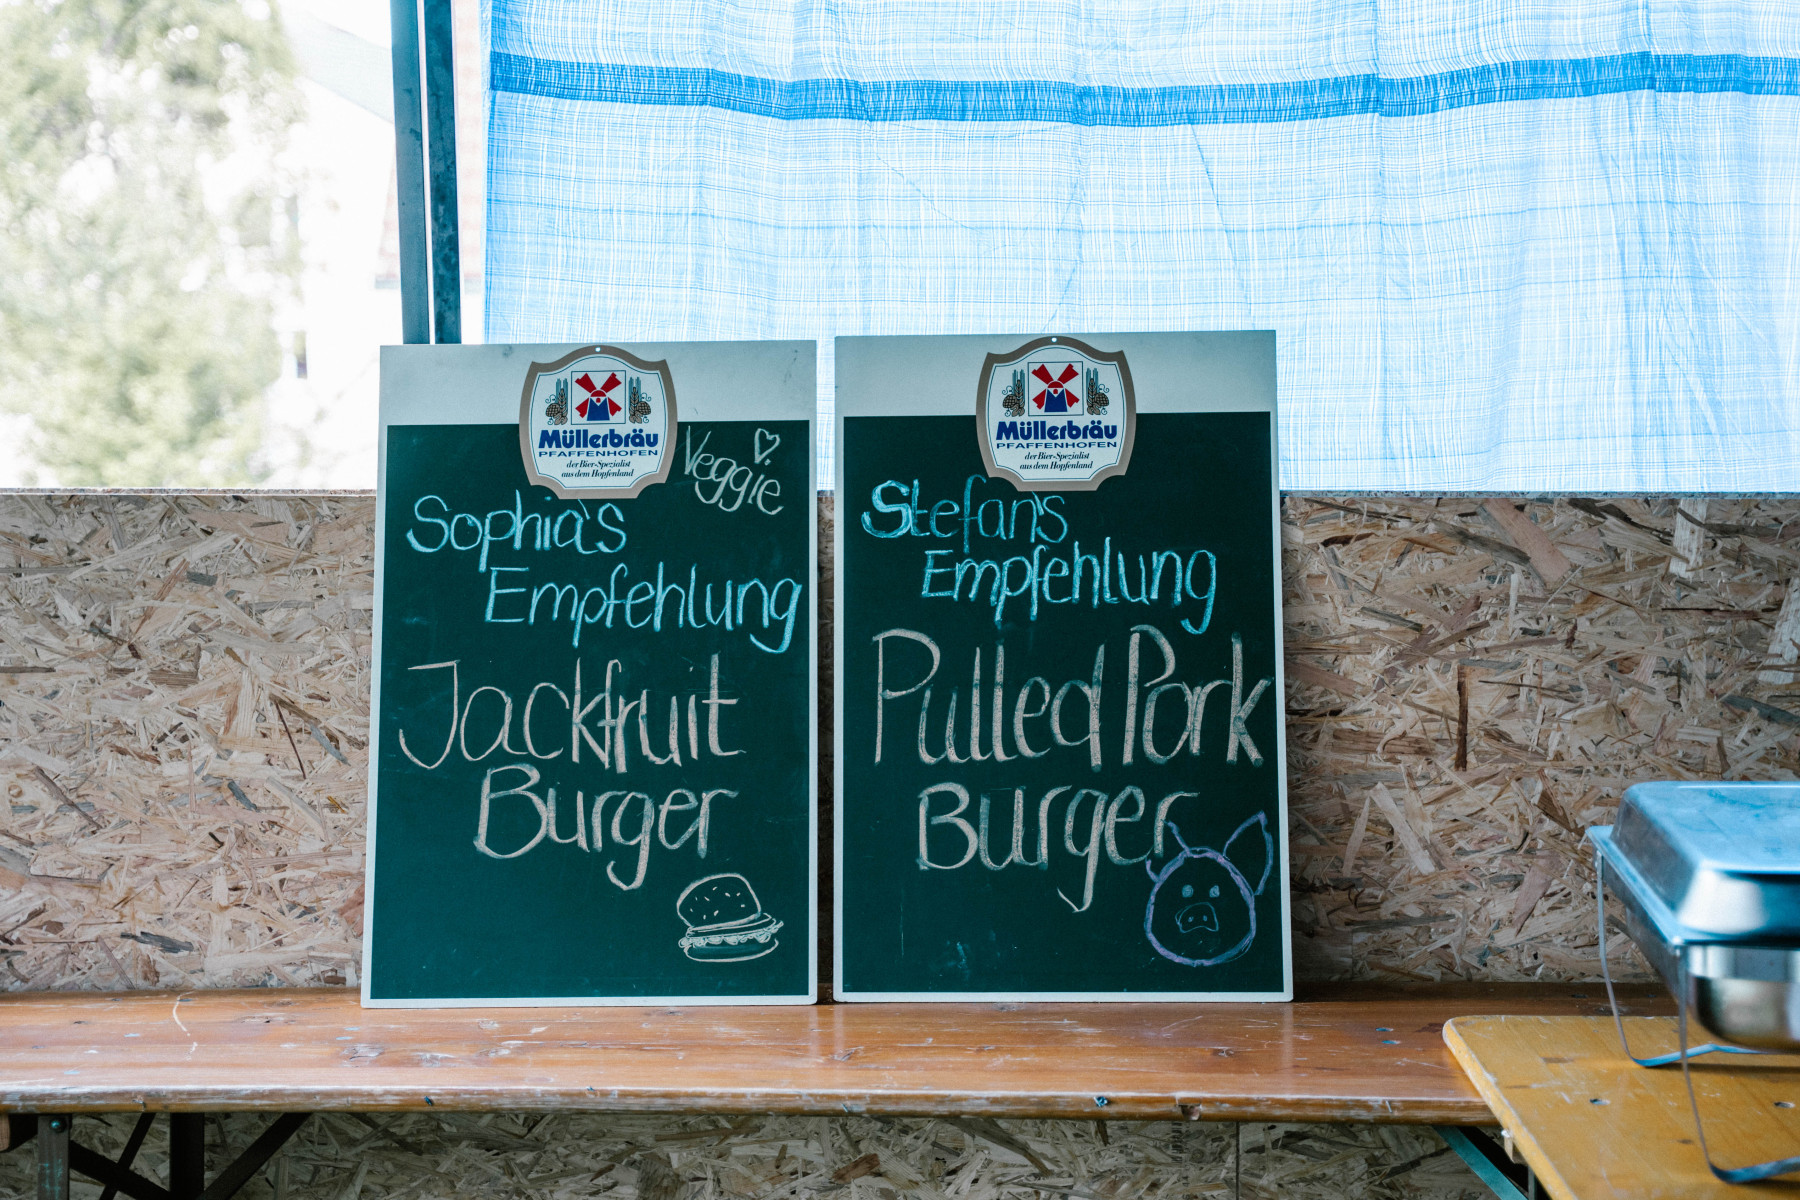 Müllerbräu
PFAFFENHOFEN
der Bier-Spezialist
aus dem Hopfenland
Veggie
Sophia's
Empfehlung
Jackfruit
Burger
Müllerbräu
PFAFFENHOFEN
der Bier-Spezialist
aus dem Hopfenland
Stefan's
Empfehlung
Pulled Pork
Burger